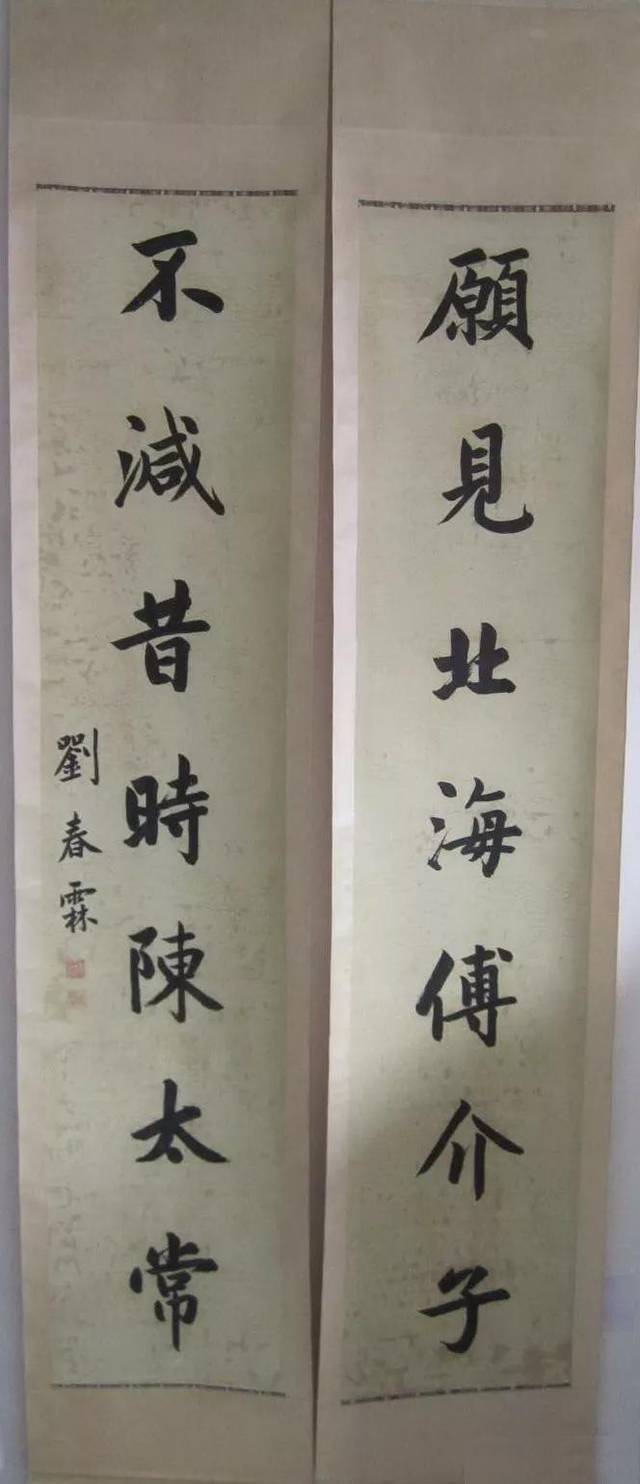 願見北海傅介子
不減昔時陳太常
劉春霖